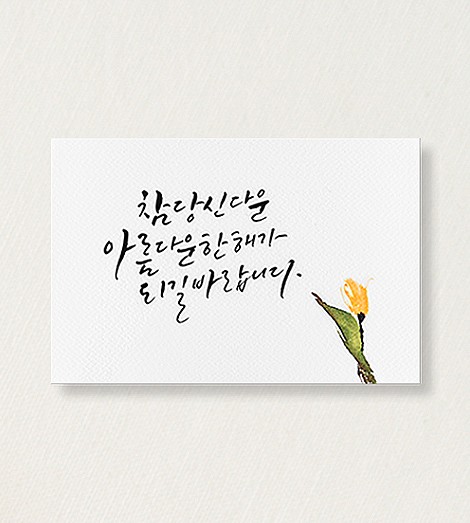 참 당신다운
아름다운 한 해가
되길 바랍니다.